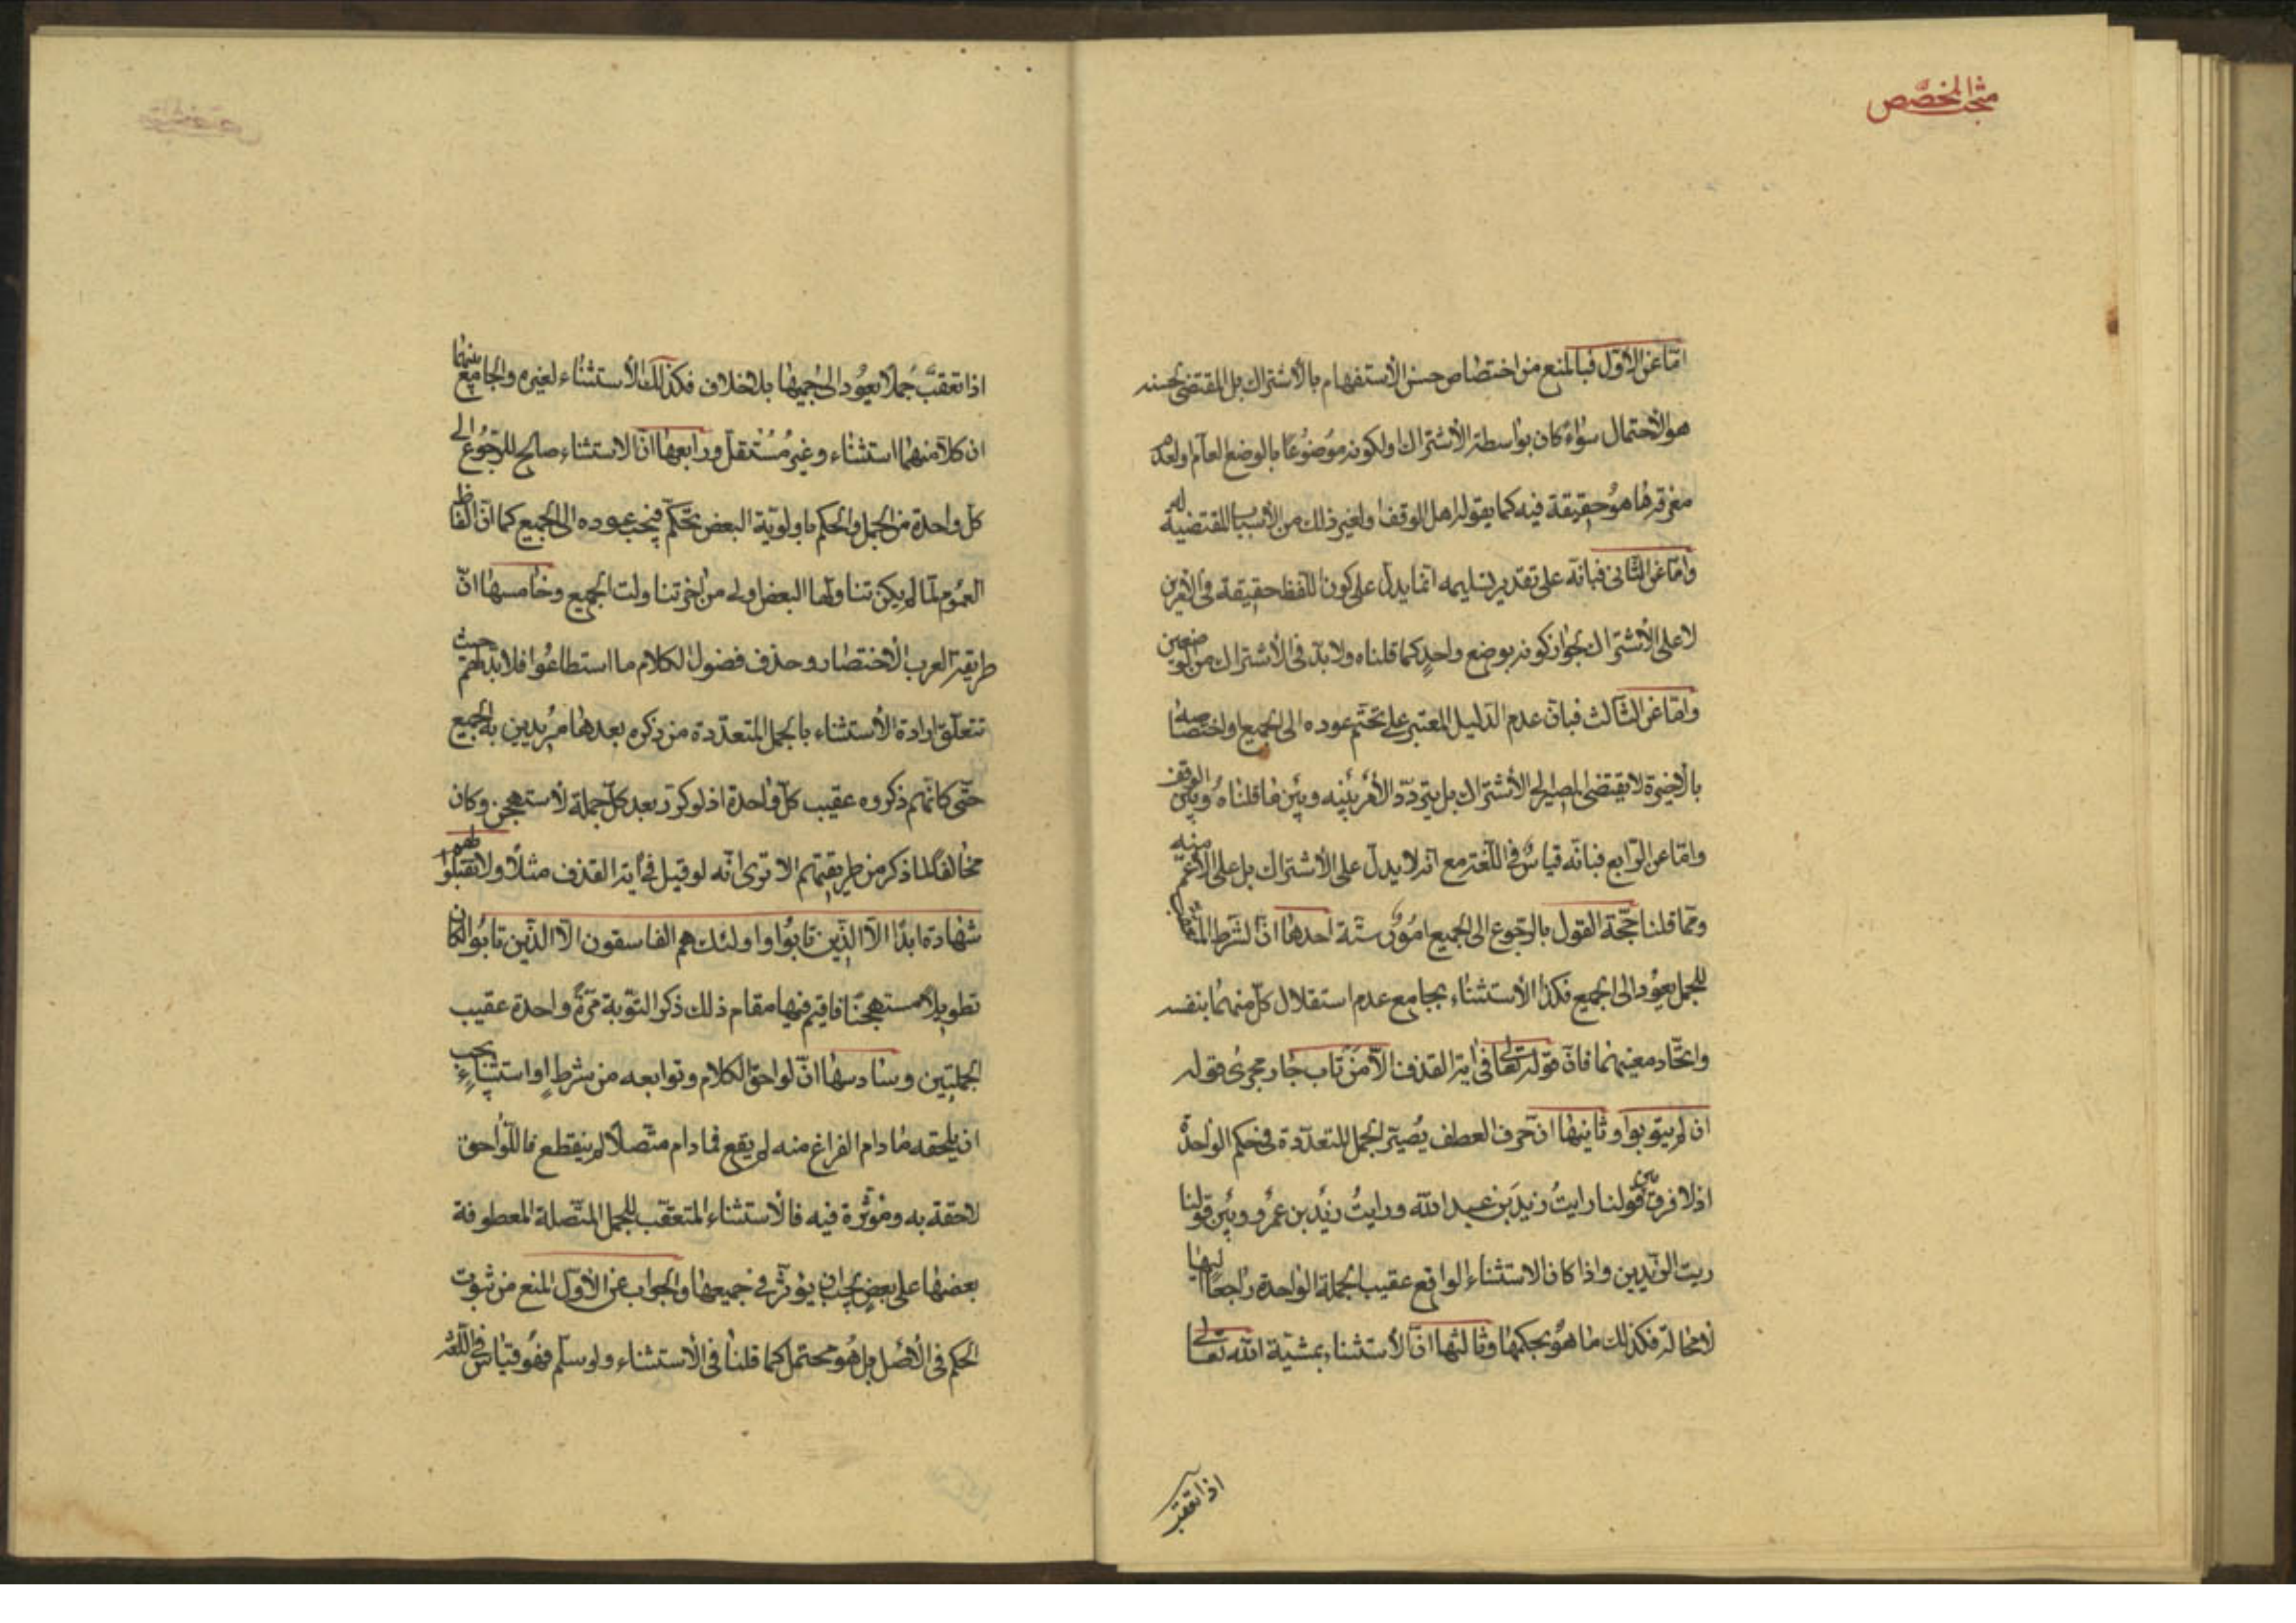 مبحث المخصّص
امّا عن الاوّل فبالمنع من اختصاص حسن الاستفهام بالاشتراك بل المقتضى لحسنه
هو الاحتمال سواء كان بواسطة الاشتراك او لكونه موضوعا بالوضع العام او لعدم
معرفة ما هو حقيقة فيه كما يقوله اهل الوقف او لغير ذلك من الاسباب المقتضية له
وامّا عن الثانى فبانّه على تقدير تسليمه انّما يدلّ على كون اللفظ حقيقة فى الامرين
لا على الاشتراك لجواز كونه بوضع واحد كما قلناه ولا بدّ فى الاشتراك من وضعين
وامّا عن الثالث فبانّ عدم الدليل المعتبر على تحتّم عوده الى الجميع او اختصاصه
بالاخيرة لا يقتضى المصير الى الاشتراك بل يتردّد الامر بينه وبين ما قلناه وبين الوقف
وامّا عن الرّابع فبانّه قياس فى اللّغة مع انه لا يدلّ على الاشتراك بل على الاعمّ منه
وممّا قلنا حجّة القول بالرجوع الى الجميع امور ستّة احدها انّ الشرط المتعقّب
للجمل يعود الى الجميع فكذا الاستثناء بجامع عدم استقلال كلّ منهما بنفسه
واتّحاد معنيهما فانّ قوله تعالى فى اية القذف الّا من تاب جار مجرى قوله
ان لم يتوبوا وثانيها انّ حرف العطف يصيّر الجمل المتعدّدة فى حكم الواحدة
اذ لا فرق بين قولنا رايت زيد بن عبد الله ورايت زيد بن عمرو وبين قولنا
ريت الزيدين واذا كان الاستثناء الواقع عقيب الجملة الواحدة راجعا اليها
لا محالة فكذلك ما هو بحكمها وثالثها انّ الاستثناء بمشيّة الله تعالى
اذا تعقب
اذا تعقّب جملا يعود الى جميعها بلا خلاف فكذلك الاستثناء لغيره والجامع بينهما
ان كلّا منهما استثناء وغير مستقلّ ورابعها انّ الاستثناء صالح للرّجوع الى
كلّ واحدة من الجمل والحكم باولويّة البعض تحكّم فيجب عوده الى الجميع كما انّ الفاظ
العموم لمّا لم يكن تناولها البعض اولى من اخر تناولت الجميع وخامسها انّ
طريقة العرب الاختصار وحذف فضول الكلام ما استطاعوا فلا بدّ لهم حيث
تتعلّق ارادة الاستثناء بالجمل المتعدّدة من ذكره بعدها مريدين به الجميع
حتّى كانّهم ذكروه عقيب كلّ واحدة اذ لو كرّر بعد كلّ جملة لاستهجن وكان
مخالفا لما ذكر من طريقتهم الا ترى انّه لو قيل فى اية القذف مثلا ولا تقبلوا لهم
شهادة ابدا الّا الّذين تابوا واولئك هم الفاسقون الّا الّذين تابوا لكان
تطويلا مستهجنا فاقيم فيها مقام ذلك ذكر التّوبة مرّة واحدة عقيب
الجملتين وسادسها انّ لواحق الكلام وتوابعه من شرط او استثناء يجب
ان يلحقه ما دام الفراغ منه لم يقع فما دام متّصلا لم ينقطع فاللّواحق
لاحقة به ومؤثرة فيه فالاستثناء المتعقّب للجمل المتّصلة المعطوفة
بعضها على بعض يجب ان يؤثّر فى جميعها والجواب عن الاوّل المنع من ثبوت
الحكم فى الاصل بل هو محتمل كما قلنا فى الاستثناء ولو سلّم فهو قياس فى اللّغة